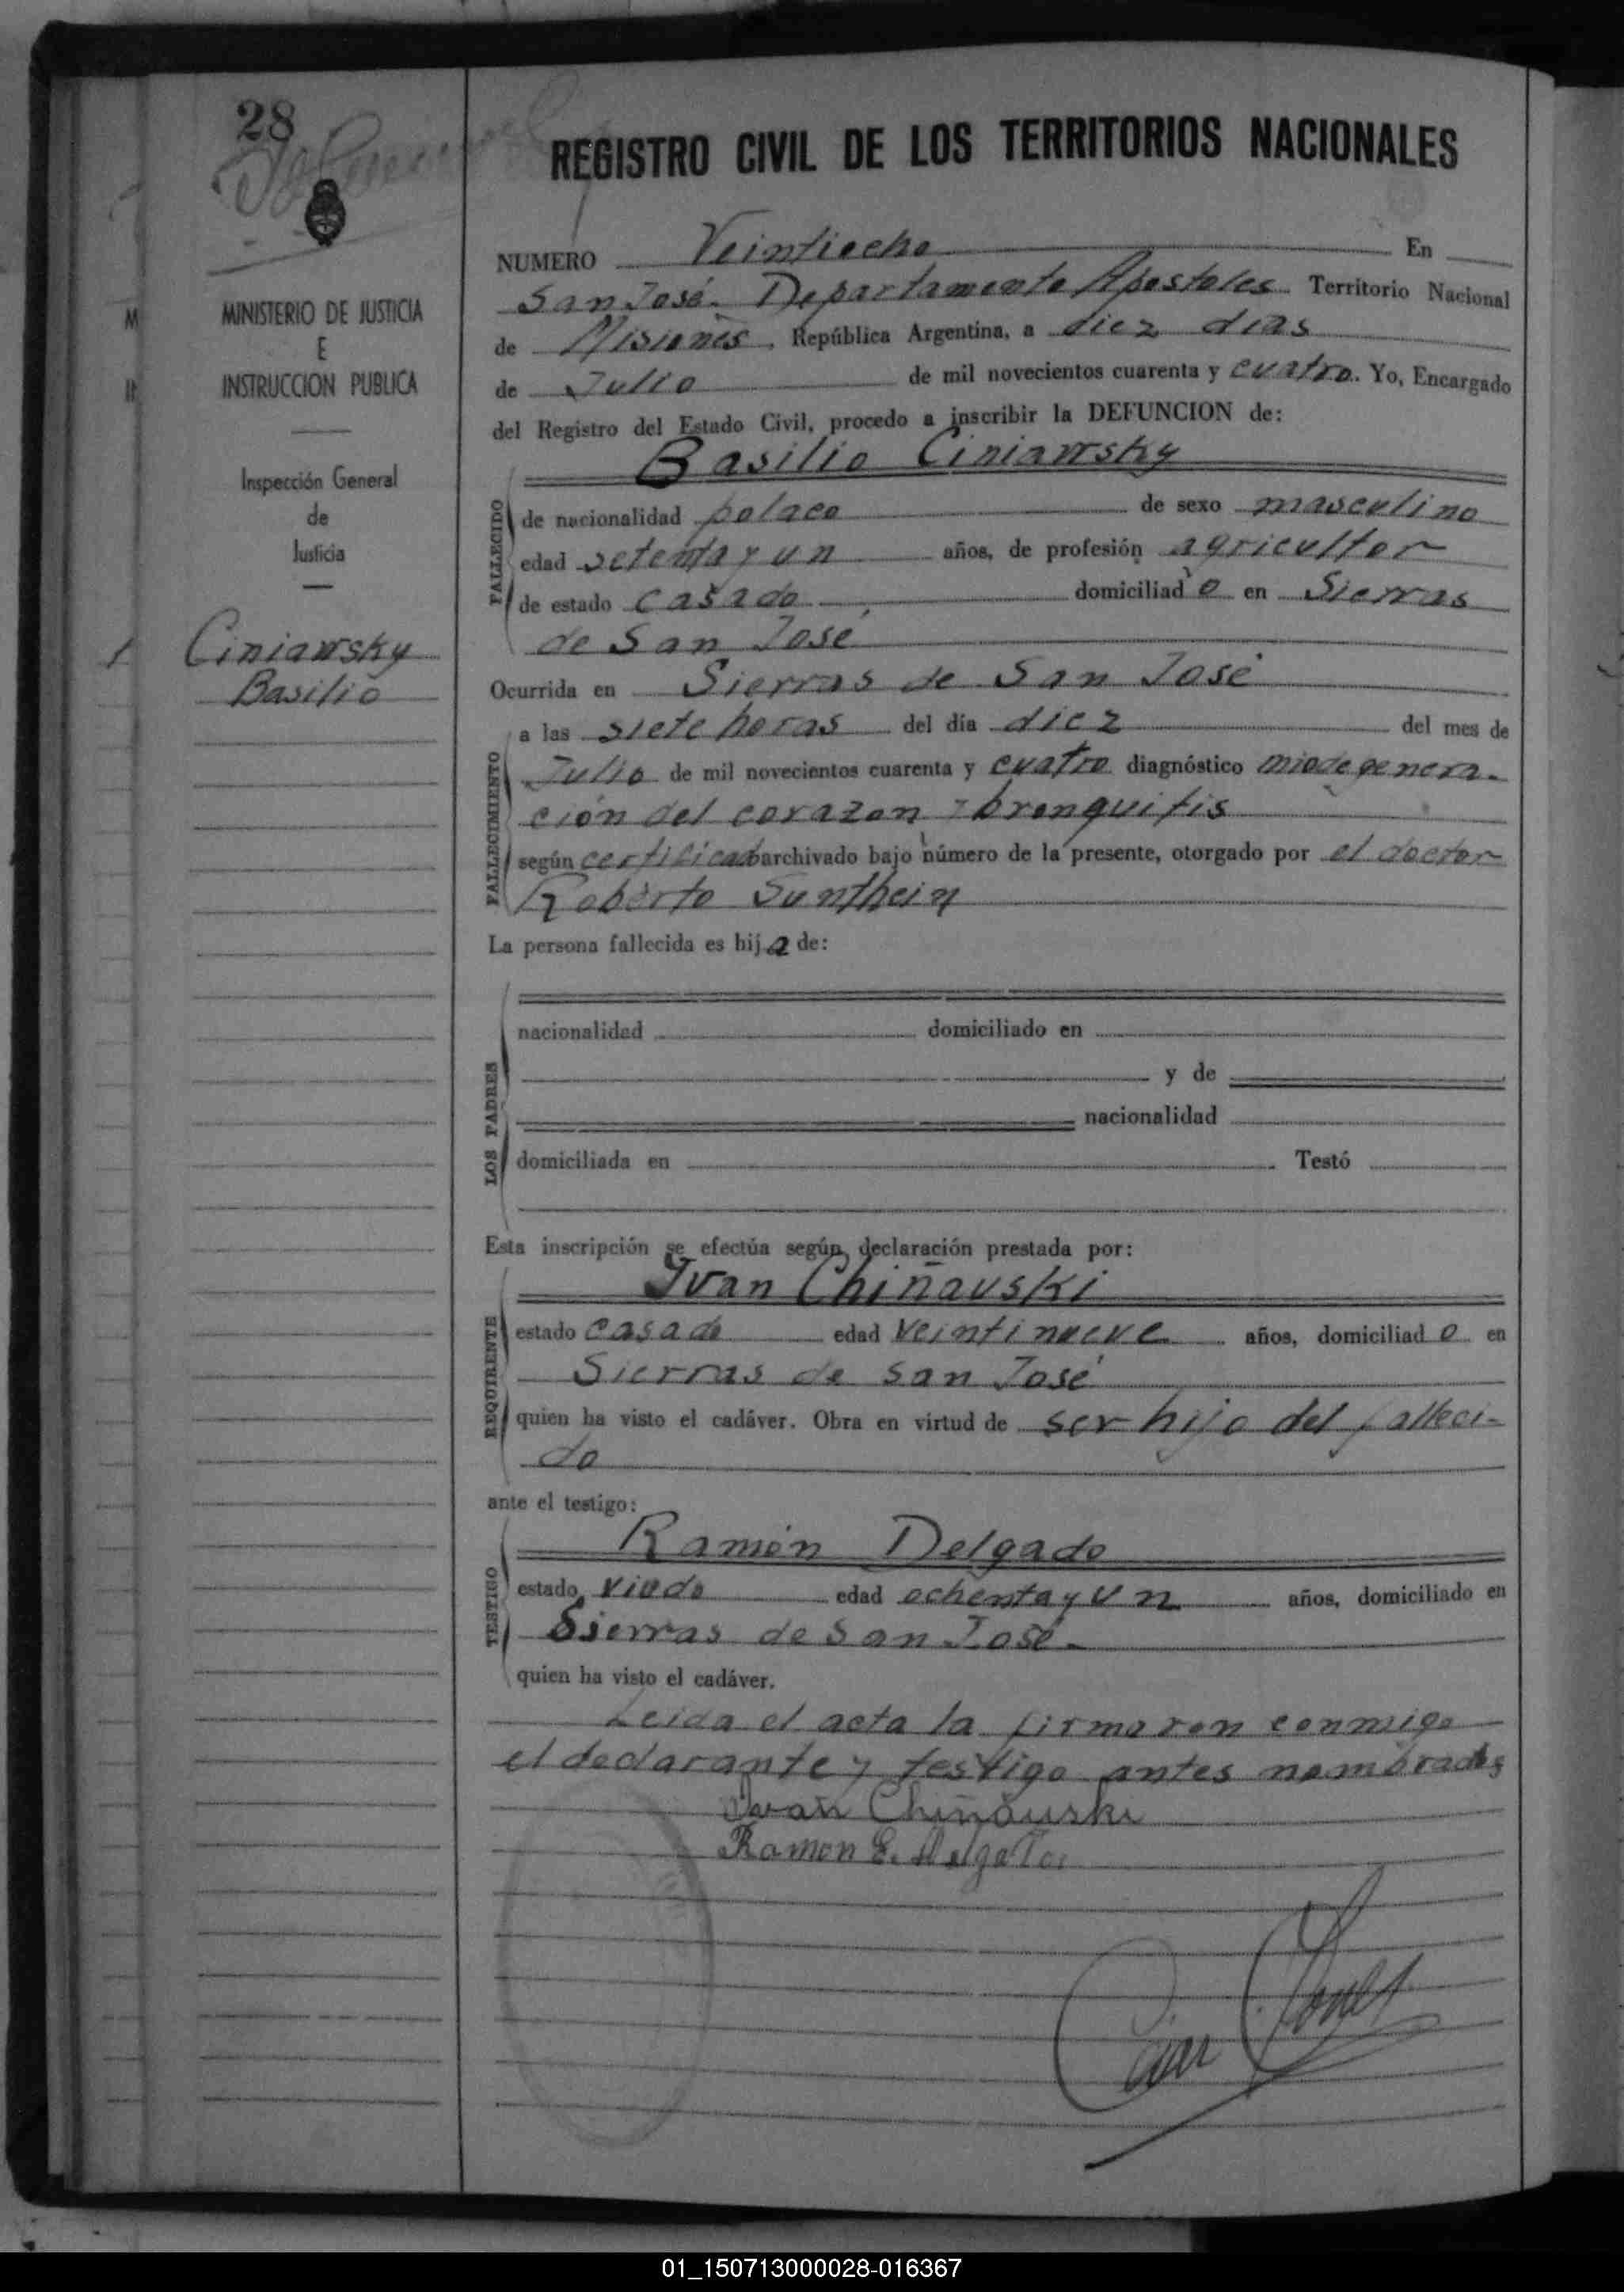 28
MINISTERIO DE JUSTICIA
E
INSTRUCCION PUBLICA
Inspección General
de
Justicia
Ciniawsky
Basilio
REGISTRO CIVIL DE LOS TERRITORIOS NACIONALES
NUMERO Veintiocho En
San José. Departamento Apostoles Territorio Nacional
de Misiones, República Argentina, a diez dias
de Julio de mil novecientos cuarenta y cuatro. Yo, Encargado
del Registro del Estado Civil, procedo a inscribir la DEFUNCION de:
Basilio Ciniawsky
FALLECIDO
de nacionalidad polaco de sexo masculino
edad setenta y un años, de profesión agricultor
de estado casado domiciliado en Sierras
de San José
Ocurrida en Sierras de San José
FALLECIMIENTO
a las siete horas del día diez del mes de
Julio de mil novecientos cuarenta y cuatro diagnóstico miodegenera-
ción del corazon - bronquitis
según certificado archivado bajo número de la presente, otorgado por el doctor
Roberto Sunthein
La persona fallecida es hija de:
LOS PADRES
nacionalidad domiciliado en
y de
nacionalidad
domiciliada en Testó
Esta inscripción se efectúa según declaración prestada por:
Ivan Chiñauski
REQUIRENTE
estado casado edad veintinueve años, domiciliado en
Sierras de San José
quien ha visto el cadáver. Obra en virtud de ser hijo del falleci-
do
ante el testigo:
Ramón Delgado
TESTIGO
estado viudo edad ochenta y un años, domiciliado en
Sierras de San José.
quien ha visto el cadáver.
Leida el acta la firmaron conmigo
el declarante y testigo antes nombrados
Ivan Chiñauski
Ramon E. Delgado
01_150713000028-016367